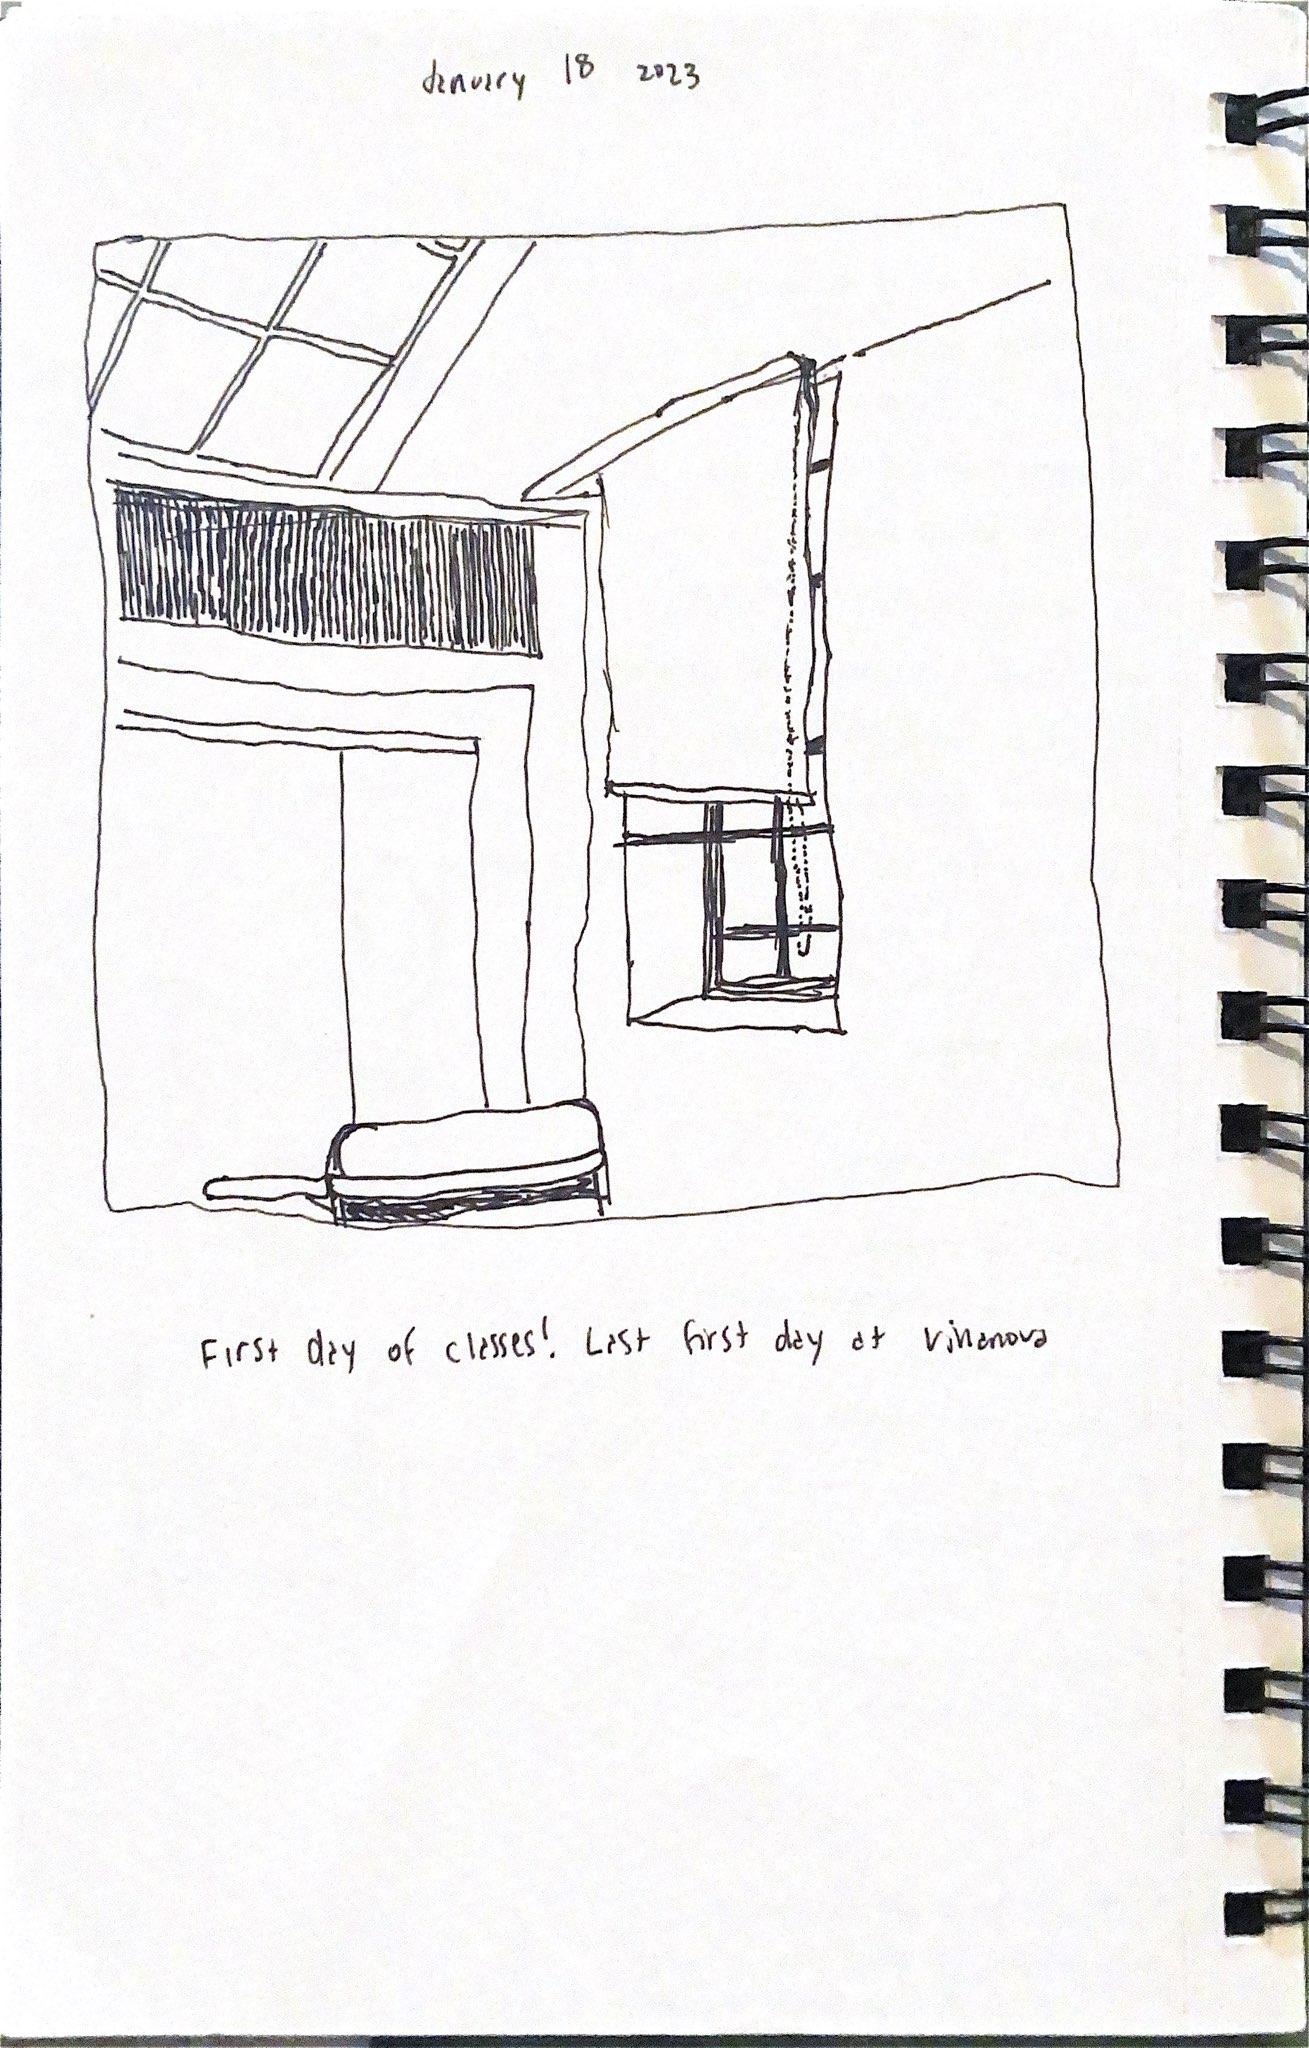 January 18 2023
First day of classes! Last first day at Villanova